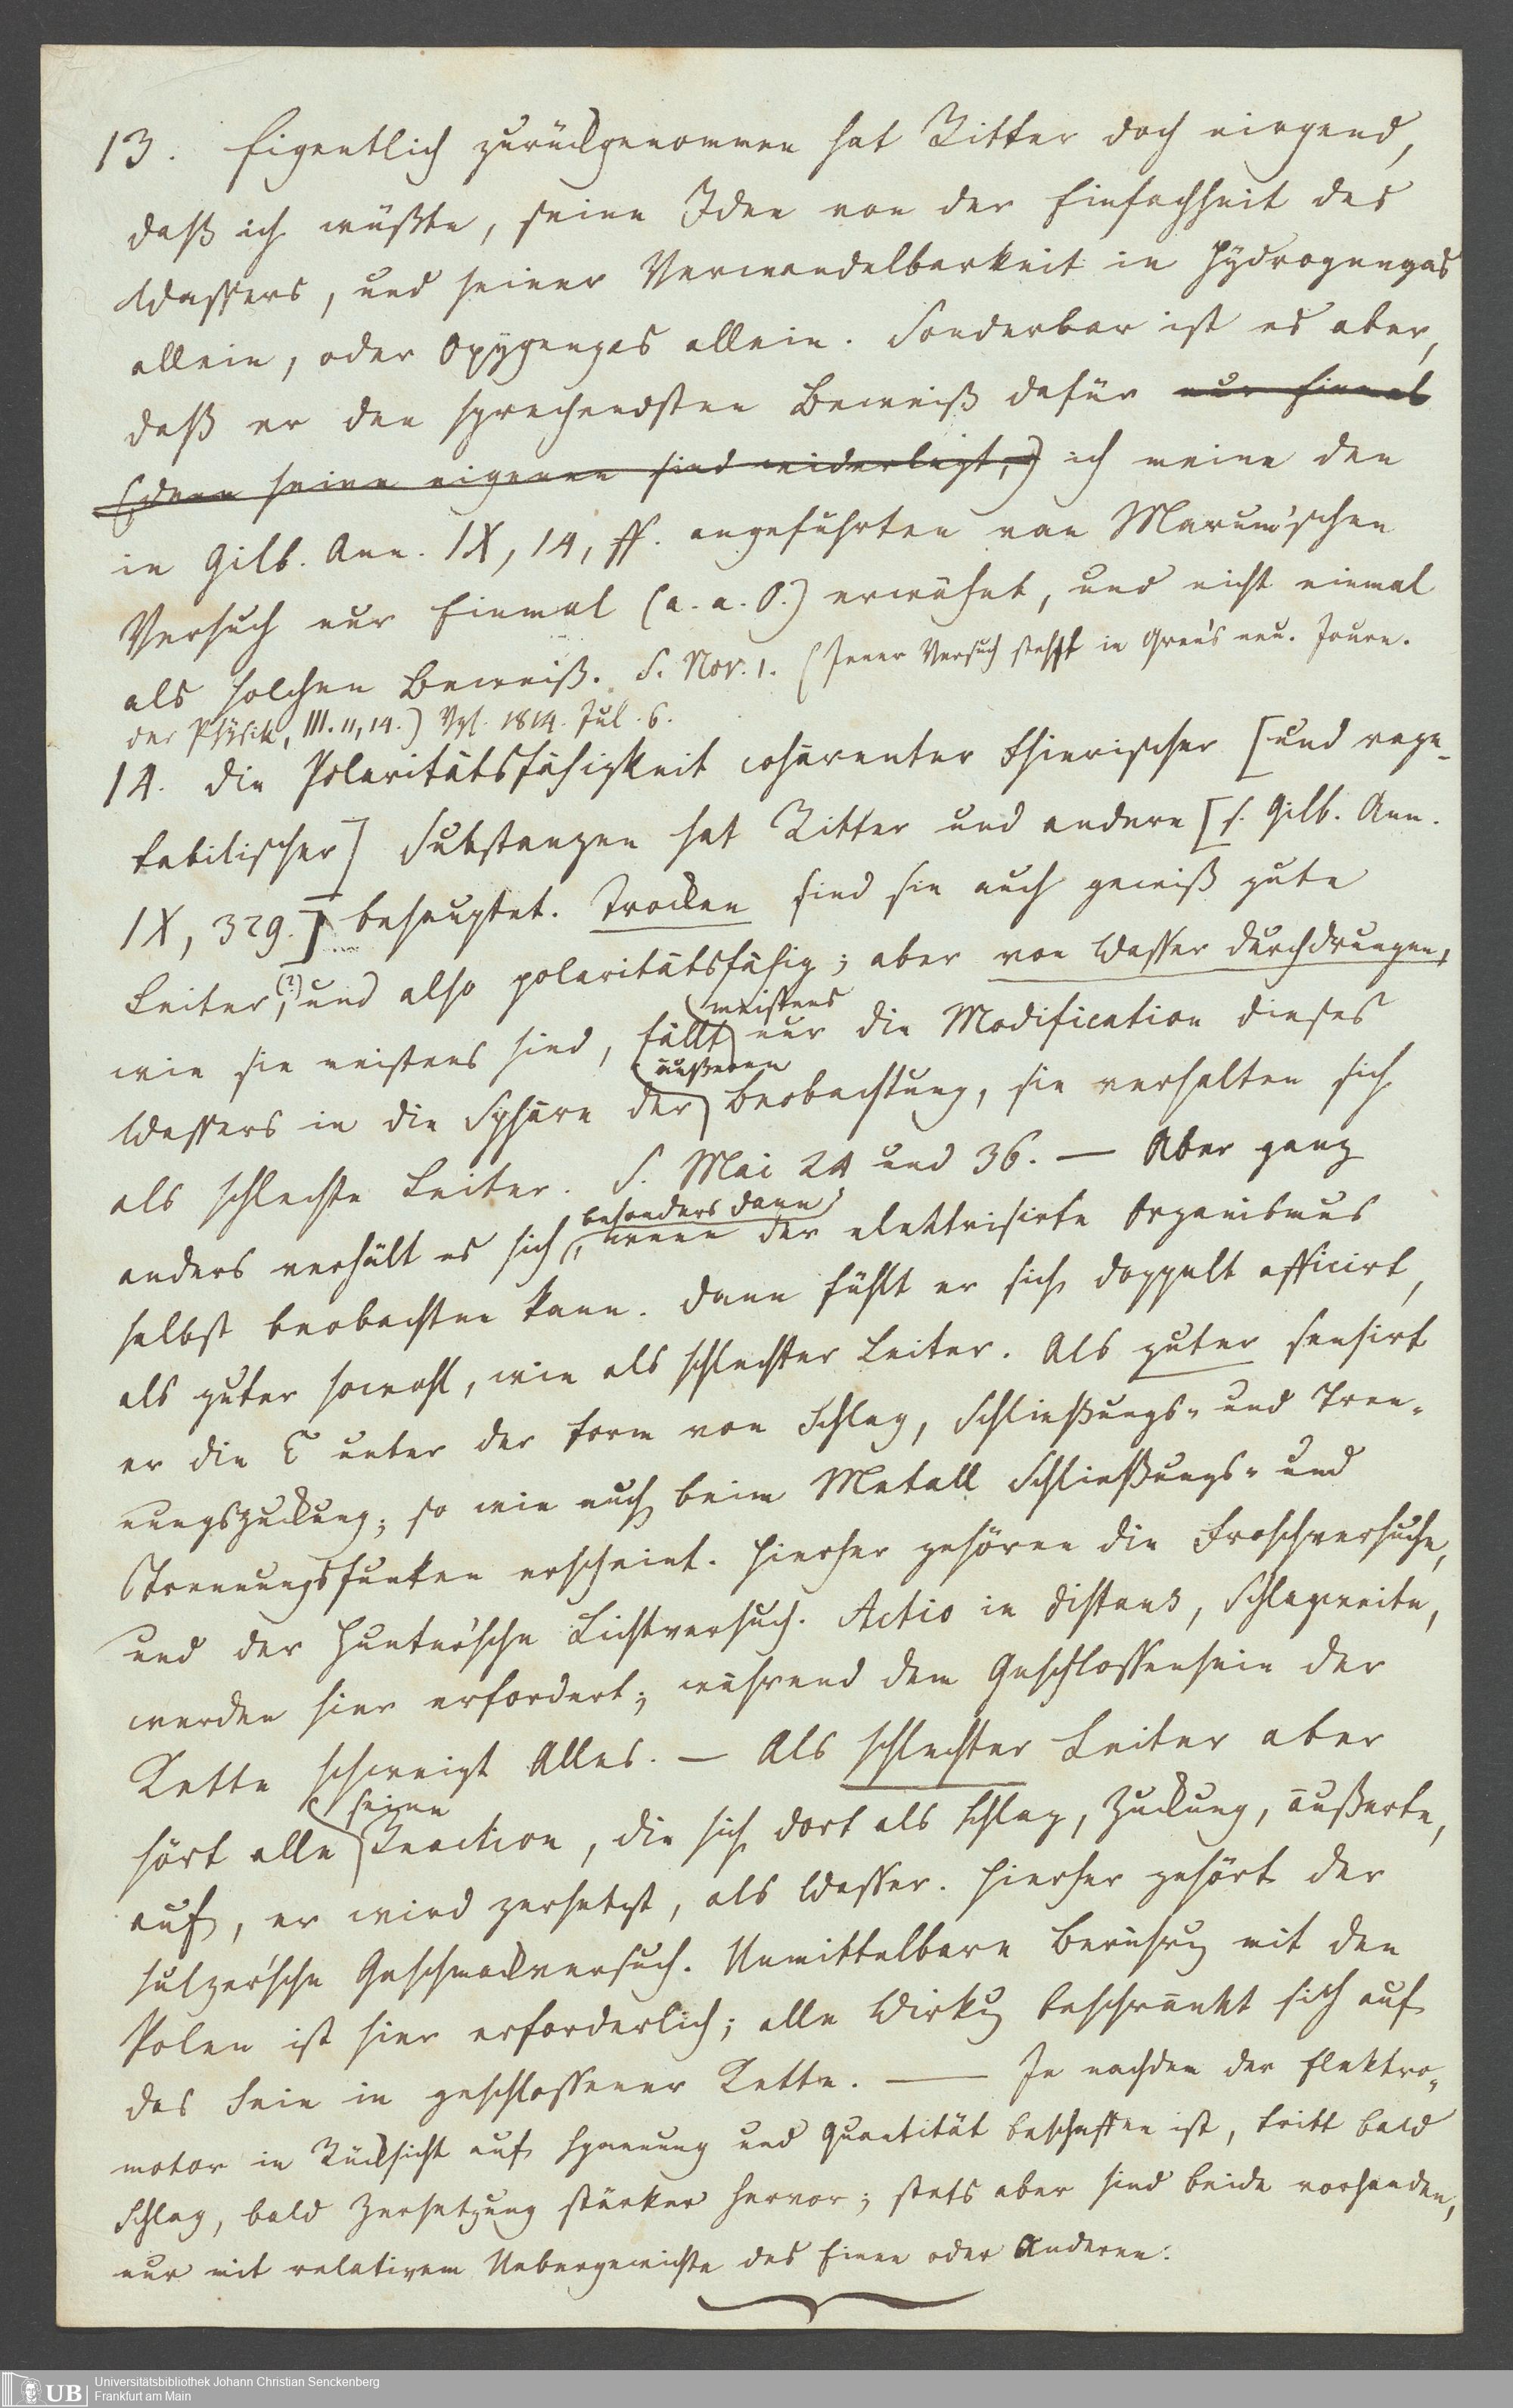 13. Eigentlich zurückgenommen hat Ritter doch nirgend,
daß ich wüßte, seine Idee von der Einfachheit des
Wassers, und seiner Verwandelbarkeit in Hydrogengas
allein, oder Oxygengas allein. Sonderbar ist es aber,
daß er den sprechendsten Beweiß dafür nur einmal
(denn seine eigenen sind widerlegt,) ich meine den
in Gilb. Ann. IX, 14, ff. angeführten van Marum'schen
Versuch nur Einmal (a. a. O.) erwähnt, und nicht einmal
als solchen Beweiß. S. Nov. 1. (Jener Versuch steht in Gren's neu. Journ.
der Physik, III. 11, 14.) Vgl. 1814. Jul. 6.
14. Die Polaritätsfähigkeit cohärenter thierischer [und vege-
tabilischer] Substanzen hat Ritter und andere [s. Gilb. Ann.
IX, 329.] behauptet. Trocken sind sie auch gewiß gute
Leiter,(?) und also polaritätsfähig; aber von Wasser durchdrungen,
meistens
wie sie meistens sind, fällt nur die Modification dieses
äußeren
Wassers in die Sphäre der Beobachtung, sie verhalten sich
als schlechte Leiter. S. Mai 24 und 36. — Aber ganz
besonders dann
anders verhält es sich, wenn der elektrisirte Organismus
selbst beobachten kann. Dann fühlt er sich doppelt afficirt,
als guter sowohl, wie als schlechter Leiter. Als guter sensirt
er die E unter der Form von Schlag, Schließungs- und Tren-
nungszuckung; so wie auch beim Metall Schließungs- und
Trennungsfunken erscheint. Hierher gehören die Froschversuche,
und der Hunter'sche Lichtversuch. Actio in distans, Schlagweite,
werden hier erfordert; während dem Geschlossensein der
Kette schweigt Alles. — Als schlechter Leiter aber
seine
hört alle Reaction, die sich dort als Schlag, Zuckung, äußerte,
auf, er wird zersetzt, als Wasser. Hierher gehört der
Sulzer'sche Geschmackversuch. Unmittelbare Berührg mit den
Polen ist hier erforderlich; alle Wirkg beschränkt sich auf
das Sein in geschlossener Kette. — Je nachdem der Elektro-
motor in Rücksicht auf Spannung und Quantität beschaffen ist, tritt bald
Schlag, bald Zersetzung stärker hervor; stets aber sind beide vorhanden,
nur mit relativem Uebergewichte des Einen oder Anderen.
UB
Universitätsbibliothek Johann Christian Senckenberg
Frankfurt am Main